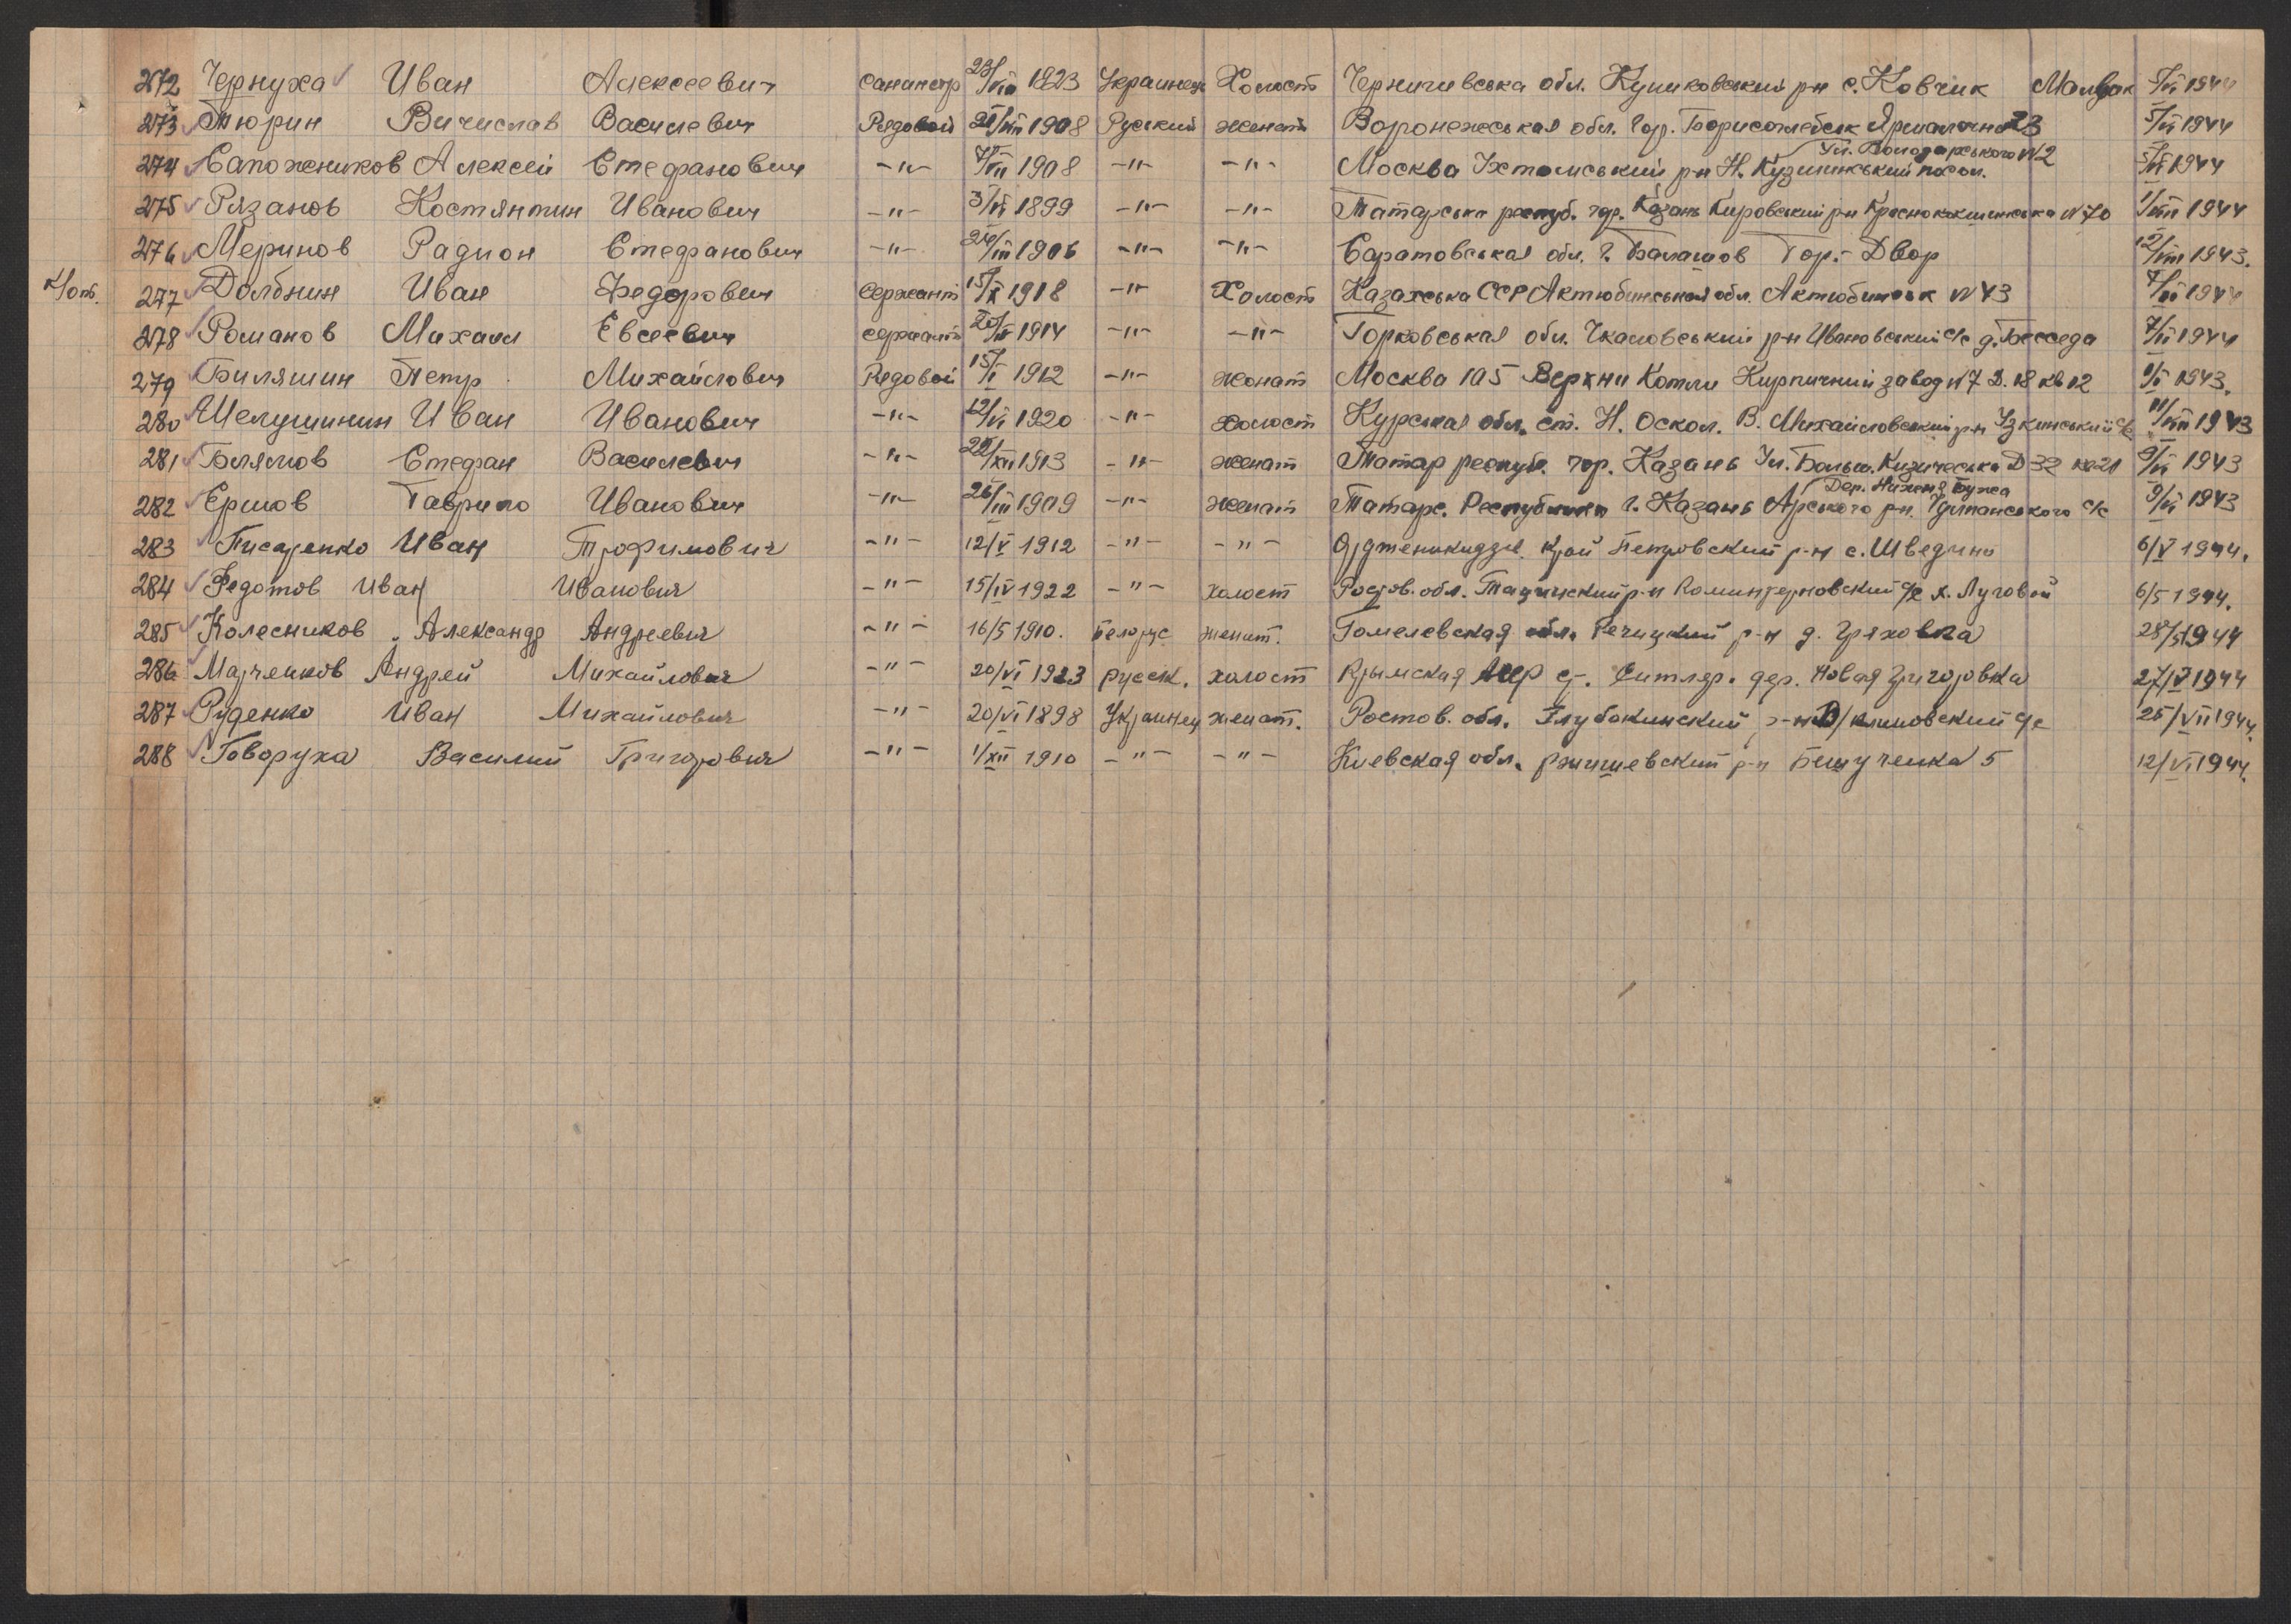 272 Чернуха Иван Алексеевич санинстр 23/VIII 1923 Украинец Холост Чернигивська обл. Куликовський р-н с. Ковчик 5/VI 1944
273 Тюрин Вичислав Василевич Рядовой 1908 Руський женат Воронежськая обл. Гор. Борисоглебск Ярмалочна 23 5/VI 1944
Ул. Володарського N2
274 Сапожников Алексей Стефанович -"- 7/VII 1908 -"- -"- Москва Ухтомський р-н Н. Кузминський посол. 5/VI 1944
275 Рязанов Костянтин Иванович -"- 3/VI 1899 -"- -"- Татарська респуб. гор. Казань Кировський р-н N 70 1944
276 Меринов Радион Стефанович -"- 24/III 1906 -"- -"- Саратовськая обл. г. Балашов Гор.- Двор 12/VIII 1943.
277 Долбнин Иван Федорович Сержант 15/X 1918 -"- Холост Казахська ССР Актюбинськая обл. Актюбинськ N 43 1944
278 Романов Михаил Евсеевич сержант 1914 -"- -"- Горковськая обл. Чкаловський р-н Ивановський с/с д. Беседа 7/VI 1944
279 Биляшин Петр Михайлович Рядовой 15/I 1912 -"- жонат Москва 105 Верхни Котли Кирпичний завод N 7 Д. 18 кв 12 1943.
280 Шелушинин Иван Иванович -"- 12/VI 1920 -"- холост Курская обл. ст. Н. Оскол. В. Михайловський р-н с/с 11/VIII 1943
281 Блямов Стефан Василевич -"- 22/XII 1913 -"- женат Татар респуб. гор. Казань Ул. Больш. Кизическа Д 32 кв 21 9/VI 1943
Дер. Нижня
282 Ершов Гаврило Иванович -"- 26/III 1909 -"- женат Татарс. Республики г. Казань Арського рн. с/с 9/VI 1943
283 Писаренко Иван Трофимович -"- 12/V 1912 -"- -"- Орджоникидзе. край Петровский р-н с. Шведино 6/V 1944.
284 Федотов Иван Иванович -"- 15/IV 1922 -"- холост Ростов. обл. Тацинский р-н Коминтерновский с/с х. Луговой 6/5 1944.
285 Колесников Александр Андреевич -"- 16/5 1910. Белорус женат. Гомелевская обл. Речицкий р-н д. Гряховка 28/5 1944
286 Марченков Андрей Михайлович -"- 20/VI 1923 русск. холост Крымская АССР ст. Ситляр. дер. Новая Григоровка 27/V 1944
287 Руденко Иван Михайлович -"- 20/VI 1898 Украинец женат. Ростов. обл. Глубокинский р-н с/с 25/VII 1944.
288 Говоруха Василий Григорович -"- 1/XII 1910 -"- -"- Киевская обл. ржищевский р-н 5 12/VI 1944.